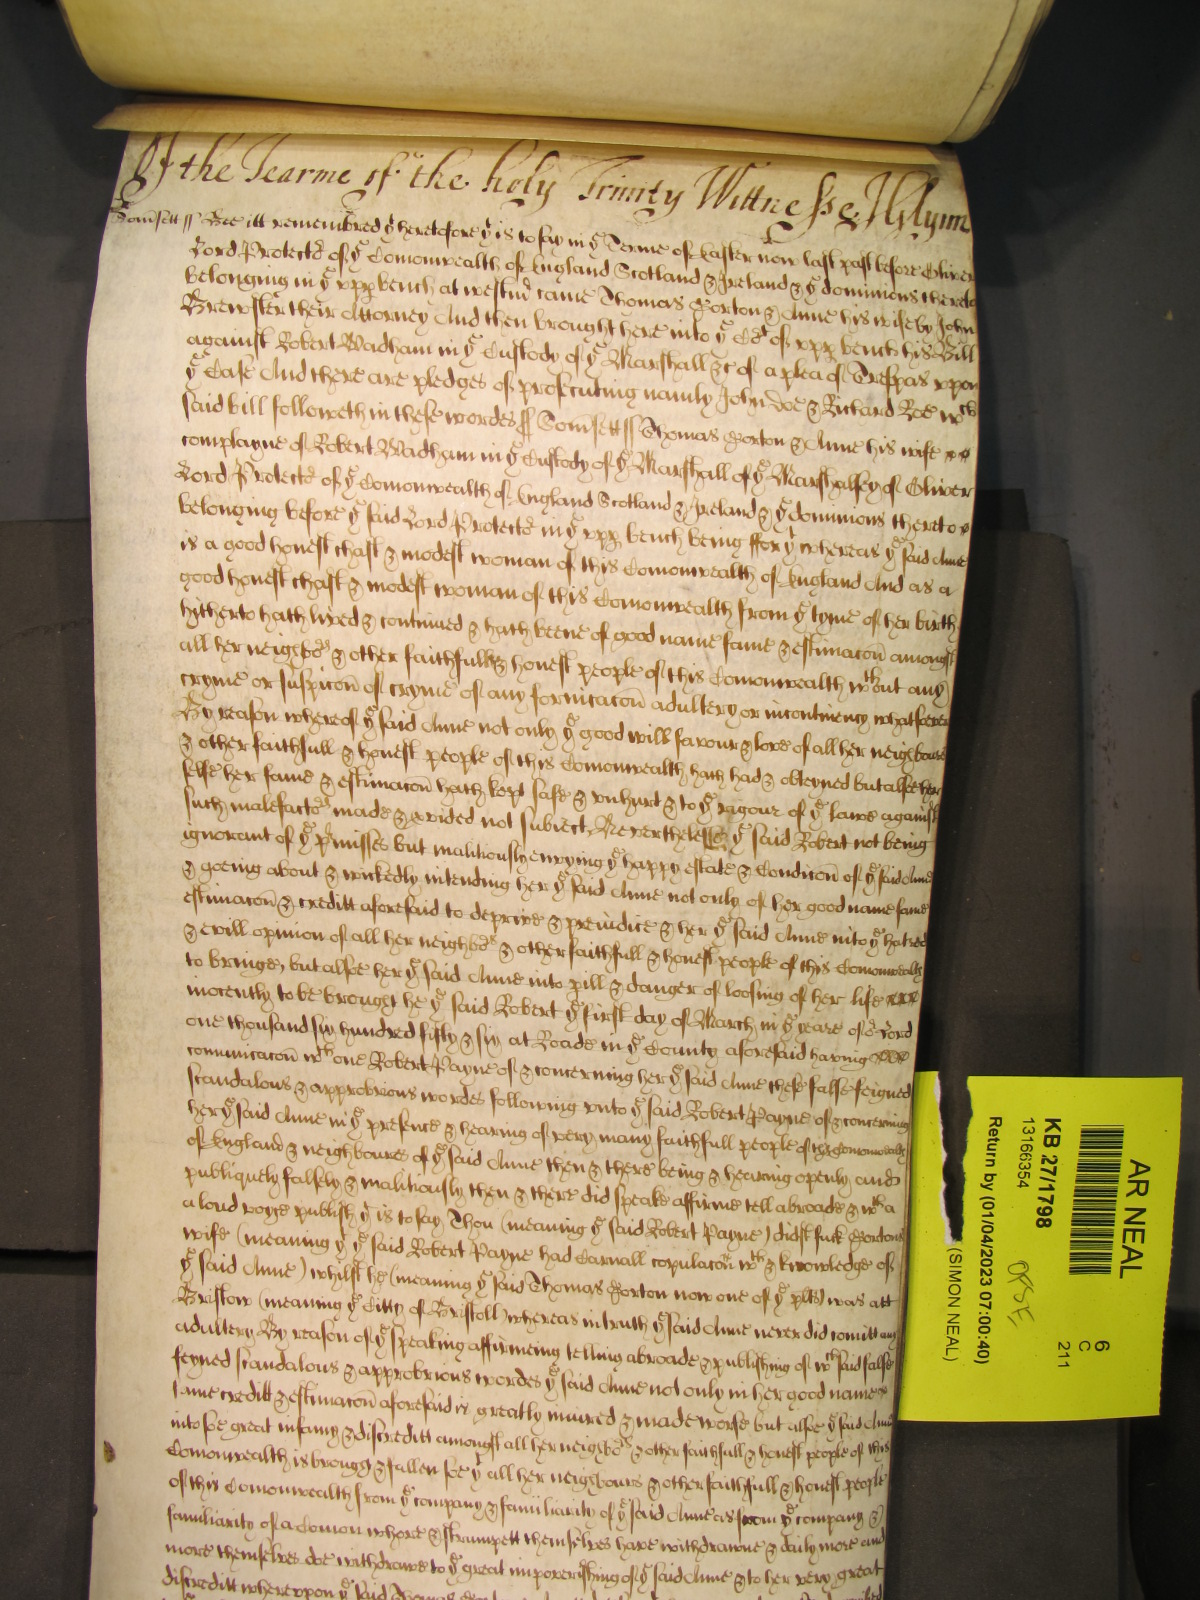 Of the Tearme of the holy Trinity Wittnesse Glynn
Somsett ss Bee itt remembred yt heretofore yt is to say in ye Terme of Easter now last past before Oliver
Lord Protector of ye Comonwealth of England Scotland & Ireland & ye dominions thereto
belonging in ye upp bench at westmr came Thomas Gorton & Anne his wife by John
Brewster their Attorney And then brought here into ye Cort of upp bench his Bill
against Robert Wadham in ye Custody of ye Marshall &c of a plea of Trespas upon
ye Case And there are pledges of prosecuting namly John Doe & Richard Roe wch
said bill followeth in these wordes ss Somsett ss Thomas Gorton & Anne his wife
complayne of Robert Wadham in ye Custody of ye Marshall of ye Marshalsey of Oliver
Lord Protector of ye Comonwealth of England Scotland & Ireland & ye dominions thereto
belonging before ye said Lord Protector in ye upp bench being ffor yt whereas ye said Anne
is a good honest chast & modest woman of this Comonwealth of England And as a
good honest chast & modest woman of this Comonwealth from ye tyme of her birth
hitherto hath lived & continued & hath beene of good name fame & estimacon amongst
all her neighbors & other faithfull & honest people of this Comonwealth wthout any
cryme or suspicon of cryme of any fornicacon adultery or incontinency whatsoever
By reason whereof ye said Anne not only ye good will favour & love of all her neighbours
& other faithfull & honest people of this Comonwealth hath had & obteyned but alsoe her
selfe her fame & estimacon hath kept safe & unhurt & to ye rigour of ye lawe against
such malefactors made & pvided not subject Neverthelesse ye said Robert not being
ignorant of ye pmisses but malitiously envying ye happy estate & Condicon of ye said Anne
& goeing about & wickedly intending her ye said Anne not only of her good name fame
estimacon & creditt aforesaid to deprive & prejudice & her ye said Anne into ye hatred
& evill opinion of all her neighbors & other faithfull & honest people of this Comonwealth
to bringe but alsoe her ye said Anne into pill & danger of loosing of her life
inocently to be brought he ye said Robert ye first day of March in ye yeare of or Lord
one thousand six hundred fifty & six at Roade in ye County aforesaid having
comunicacon wth one Robert Payne of & concerning her ye said Anne these false feigned
scandalous & approbrious wordes following unto ye said Robert Payne of & concerning
her ye said Anne in ye presence & hearing of very many faithfull people of this Comonwealth
of England & neighboures of ye said Anne then & there being & hearing openly and
publiquely falsely & malitiously then & there did speake affirme tell abroade & wth a
a loud voyce publish yt is to say Thou (meaning ye said Robert Payne) didst fuck Gortons
wife (meaning yt ye said Robert Payne had Carnall copulacon wth & knowledge of
ye said Anne) whilst he (meaning ye said Thomas Gorton now one of ye plts) was att
Bristow (meaning ye Citty of Bristoll) whereas in truth ye said Anne never did comitt any
adultery By reason of ye speaking affirmeing telling abroade & publishing of wch said false
feyned scandalous & approbrious wordes ye said Anne not only in her good name
fame creditt & estimacon aforesaid is greatly iniured & made worse but alsoe ye said Anne
into soe great infamy & discreditt amongst all her neighbors & other faithfull & honest people of this
Comonwealth is brougt & fallen soe yt all her neighbours & other faithfull & honest people
of this Comonwealth from ye company & familiarity of ye said Anne as from ye company &
familiarity of a Comon whore & strumpett themselves have withdrawne & daily more and
more themselves doe withdrawe to ye great impoverishing of ye said Anne & to her very great
discreditt whereupon ye said Thomas
AR NEAL
KB 27/1798
13166354
Return by (01/04/2023 07:00:40)
(SIMON NEAL)
6
C
211